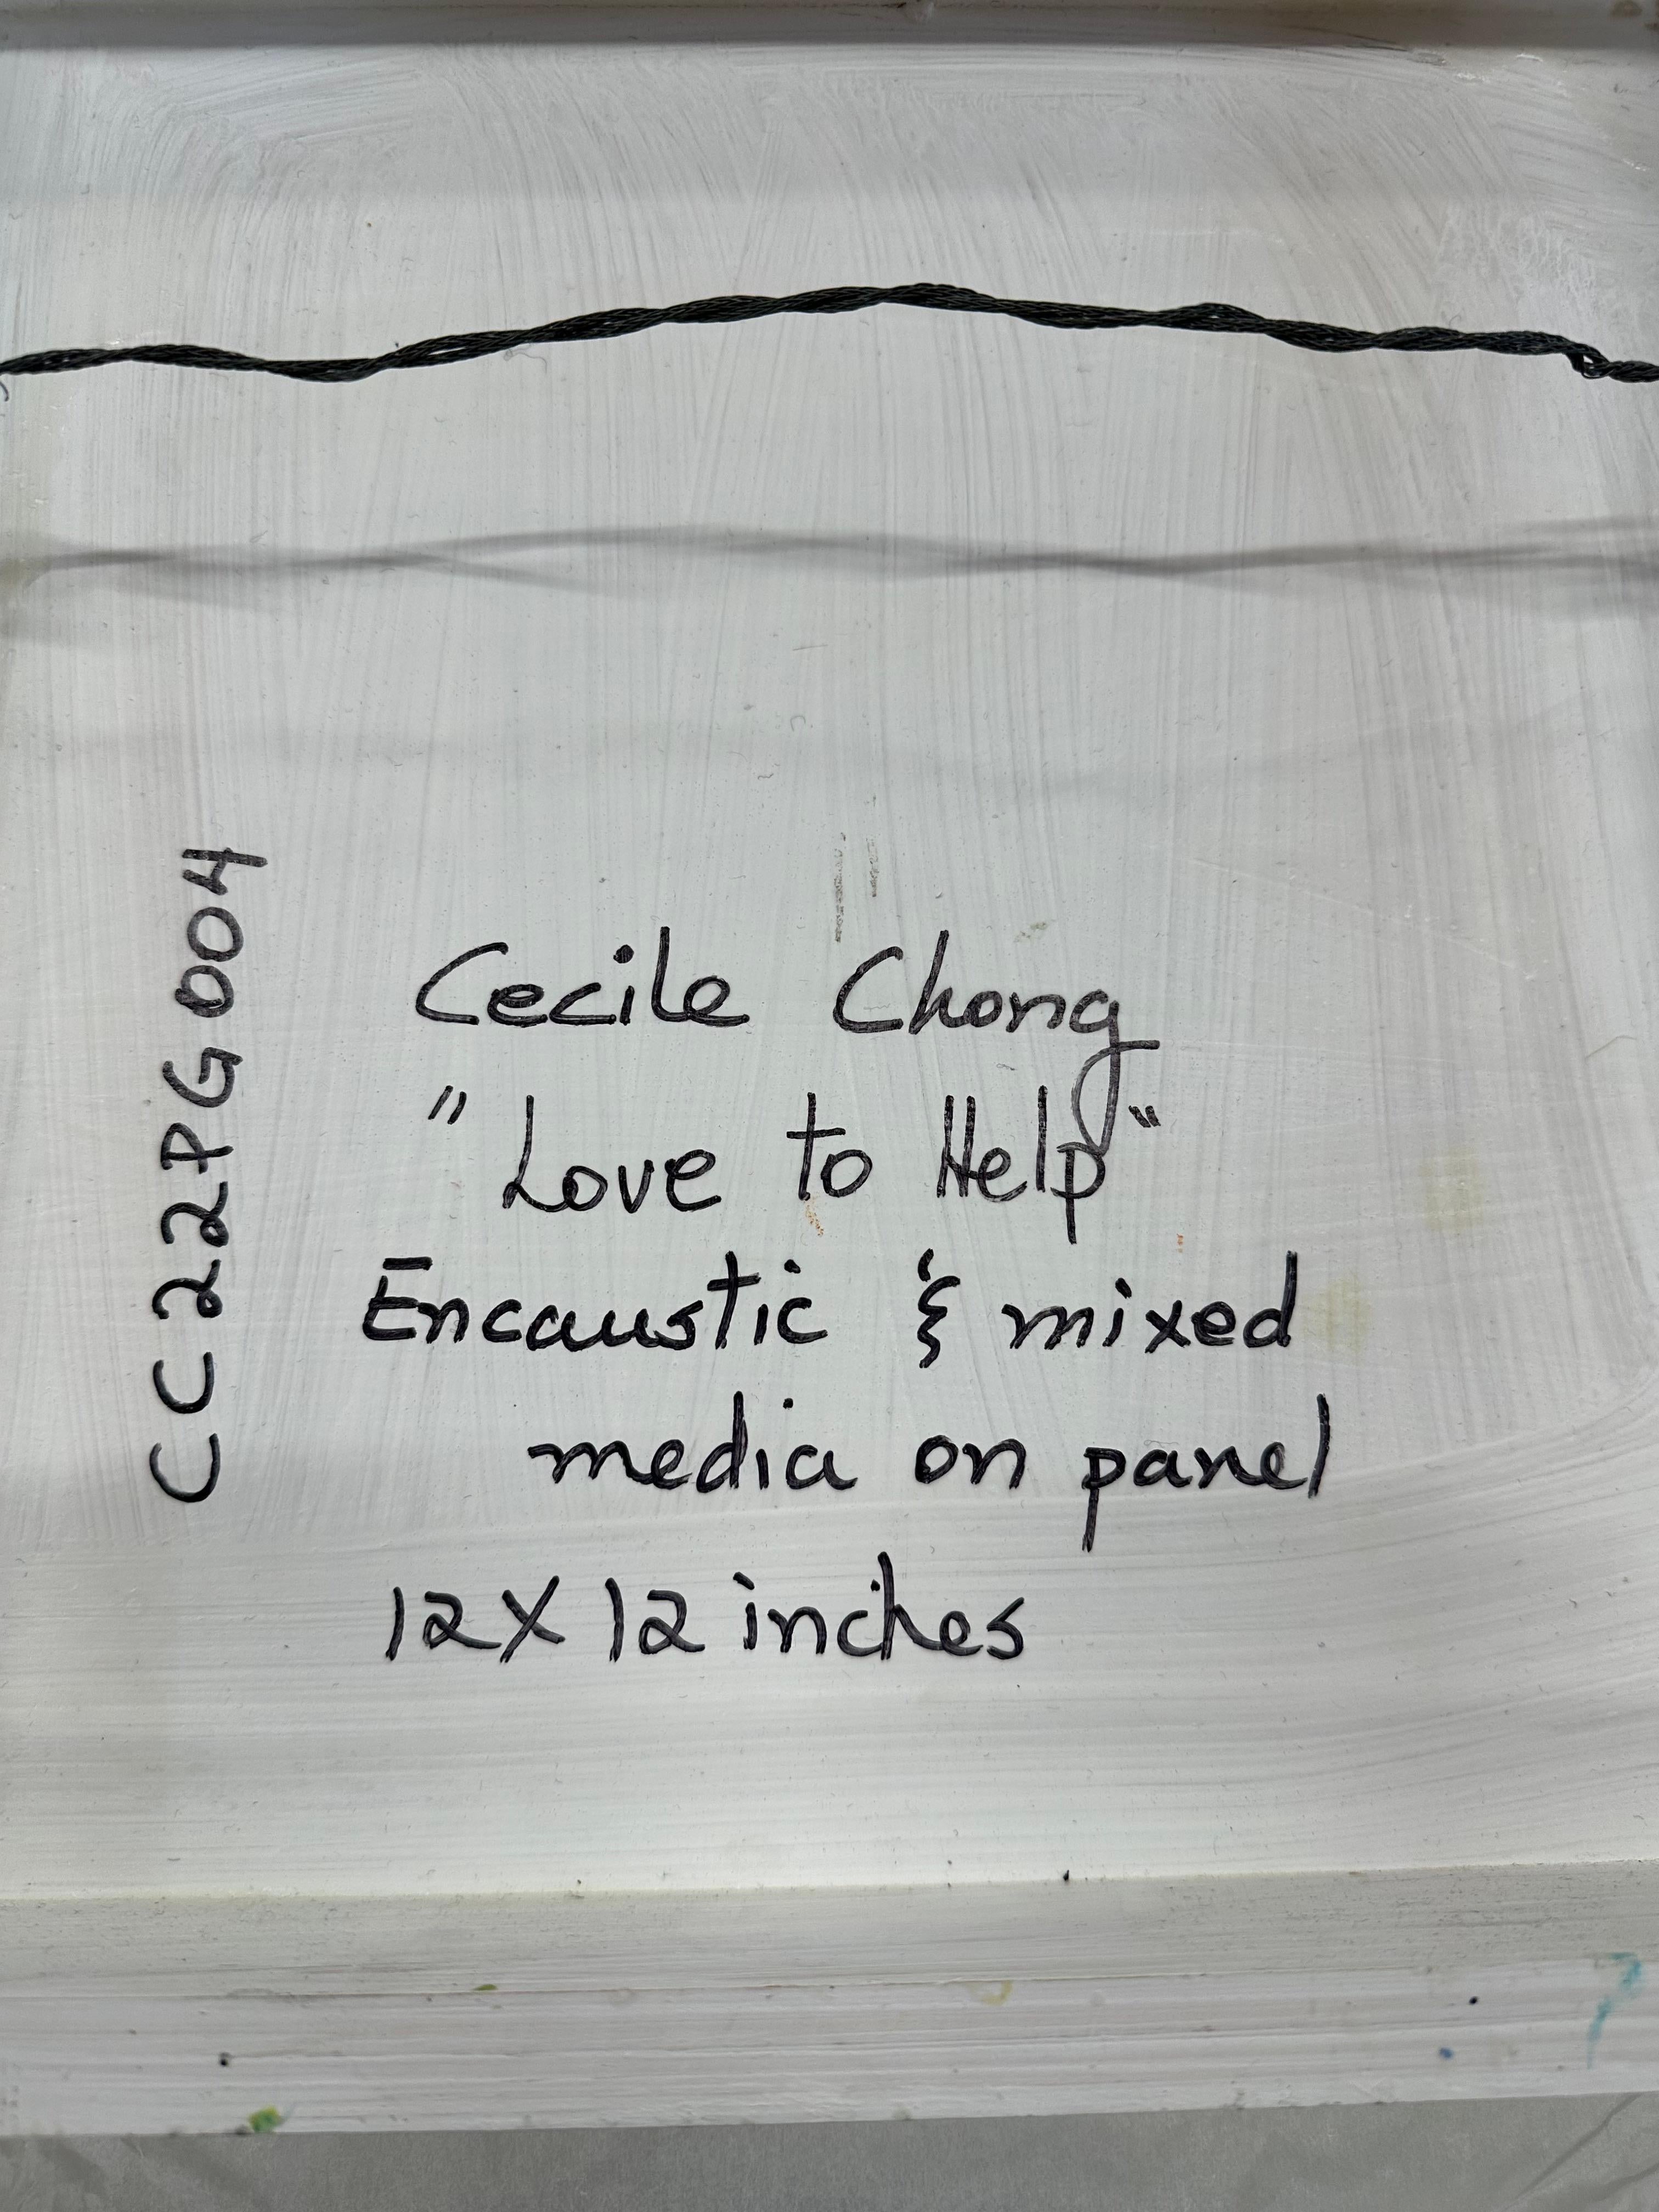 CC22PG004
Cecile Chong
"Love to Help"
Encaustic & mixed
media on panel
12X12 inches